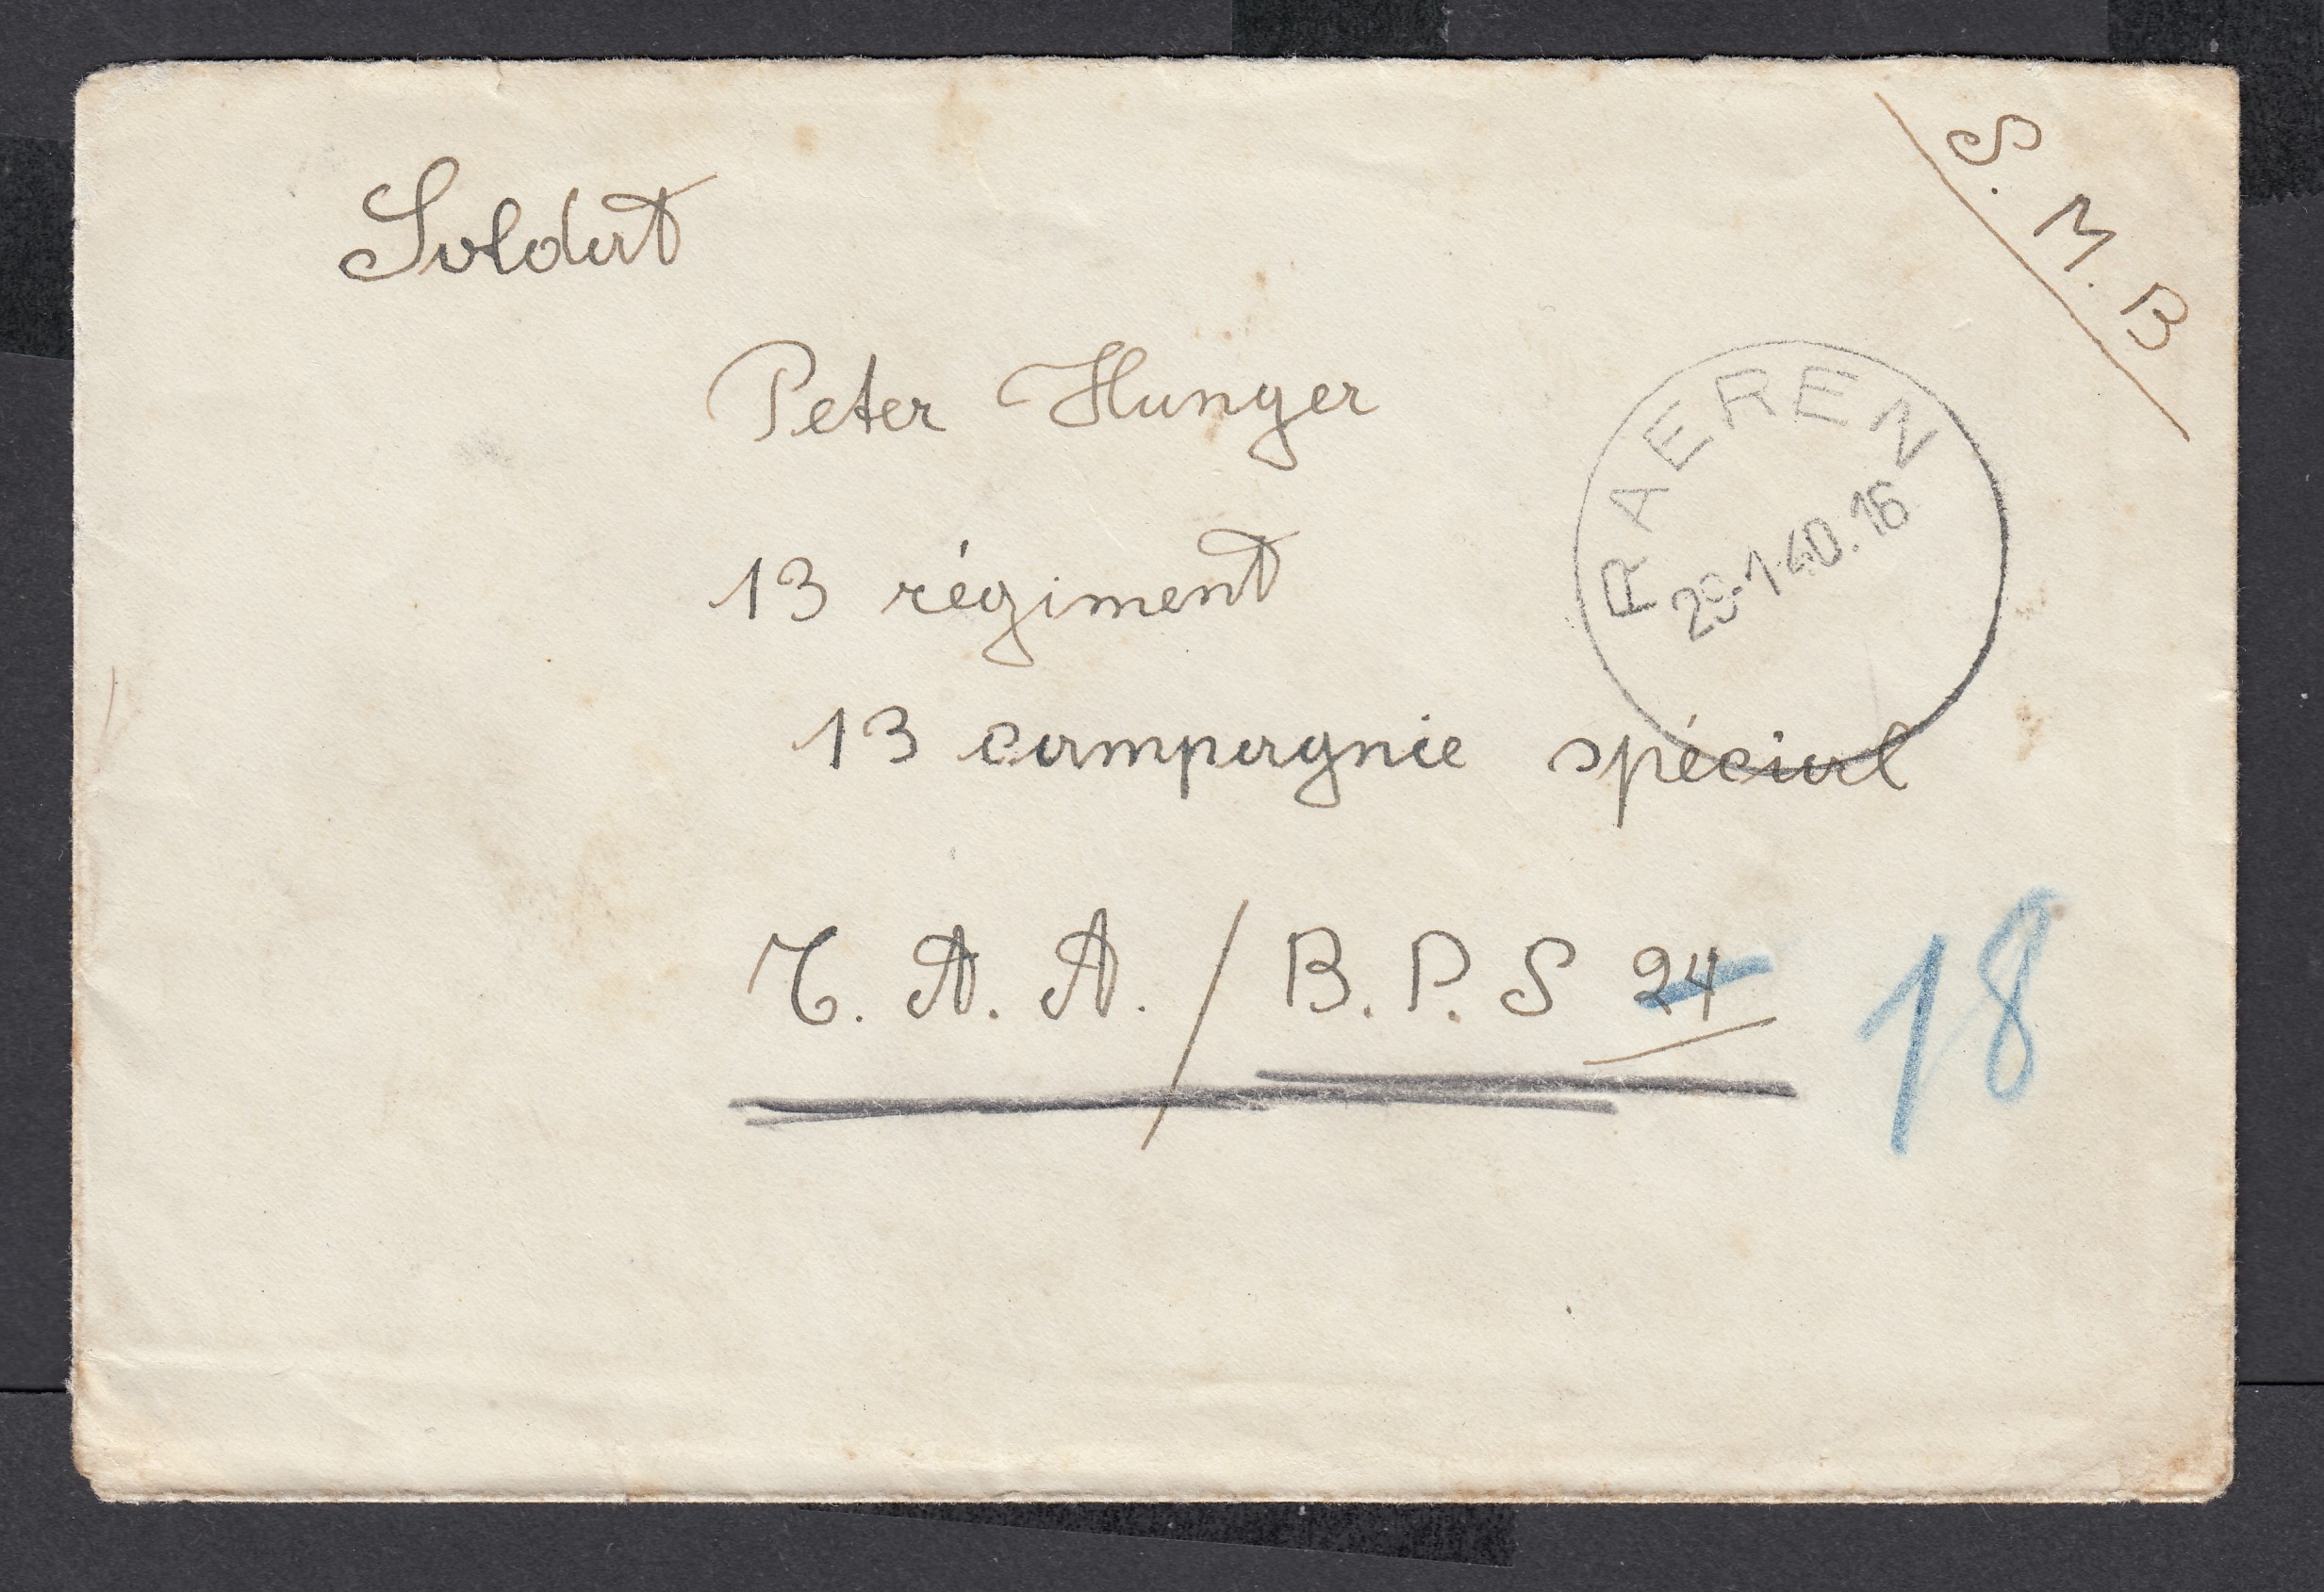 S. M. B
Soldat
Peter Hunger
RAEREN
29-1-40.16
13 régiment
13 compagnie spécial
T. A. A. / B. P. S 24
18